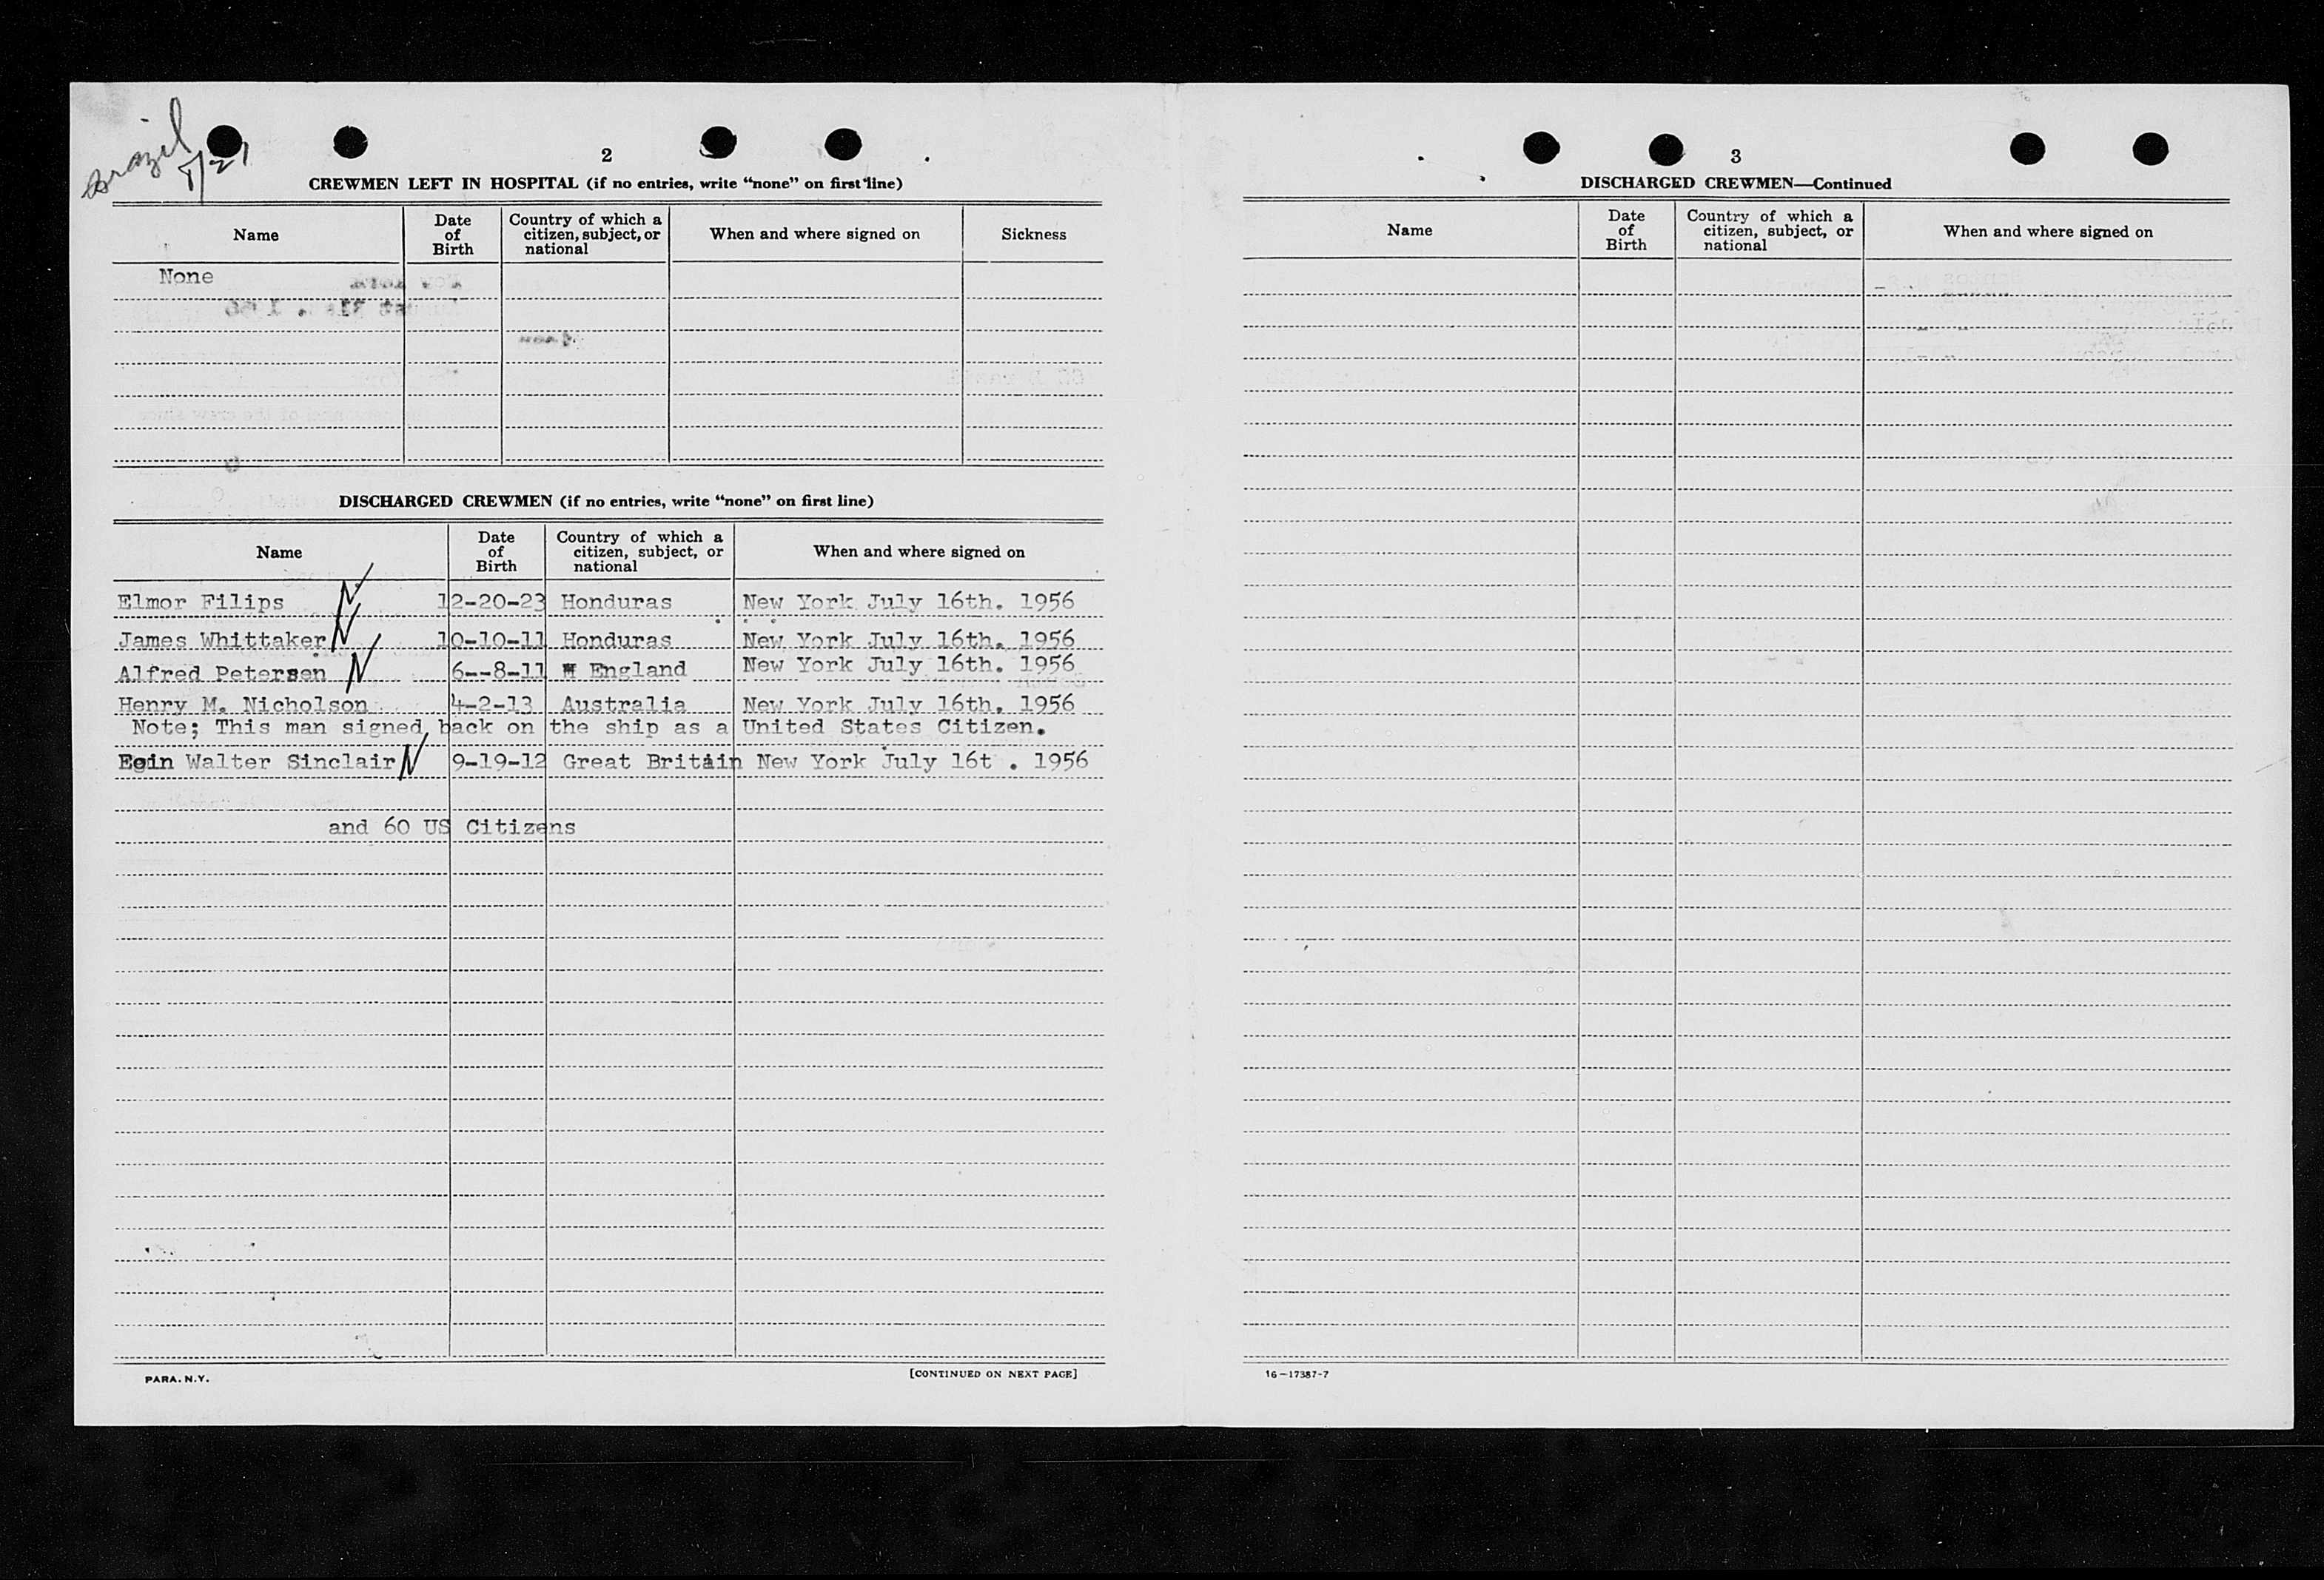 Brazil
8/21
2
CREWMEN LEFT IN HOSPITAL (if no entries, write “none” on first line)
Name Date of Birth Country of which a citizen, subject, or national When and where signed on Sickness
None
DISCHARGED CREWMEN (if no entries, write “none” on first line)
Name Date of Birth Country of which a citizen, subject, or national When and where signed on
Elmor Filips N 12-20-23 Honduras New York July 16th. 1956
James Whittaker N 10-10-11 Honduras New York July 16th. 1956
Alfred Petersen N 6--8-11 England New York July 16th. 1956
Henry M. Nicholson 4-2-13 Australia New York July 16th. 1956
Note; This man signed back on the ship as a United States Citizen.
Walter Sinclair N 9-19-12 Great Britain New York July 16t . 1956
and 60 US Citizens
PARA. N.Y. [CONTINUED ON NEXT PAGE]
3
DISCHARGED CREWMEN—Continued
Name Date of Birth Country of which a citizen, subject, or national When and where signed on
16—17387-7